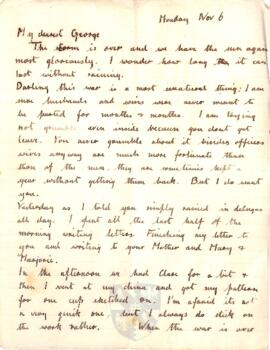 Monday Nov 6
My dearest George
The storm is over and we have the sun again
most gloriously. I wonder how long then it can
last without raining.
Darling this war is a most unnatural thing; I am
sure husbands and wives were never meant to
be parted for months & months. I am trying
not grumble even inside because you dont get
leave. You never grumble about it besides officers
wives anyway are much more fortunate than
those of the men, they are sometimes kept a
year without getting them back. But I do want
you.
Yesterday as I told you simply rained in deluges
all day. I spent all the last half of the
morning writing letters. Finishing my letter to
you and writing to your Mother and Mary &
Marjorie.
In the afternoon we had Clare for a bit &
then I went at my china and got my pattern
for one cup sketched on. I'm afraid its not
a very quick one but I always do stick on
the work rather. When the war is over